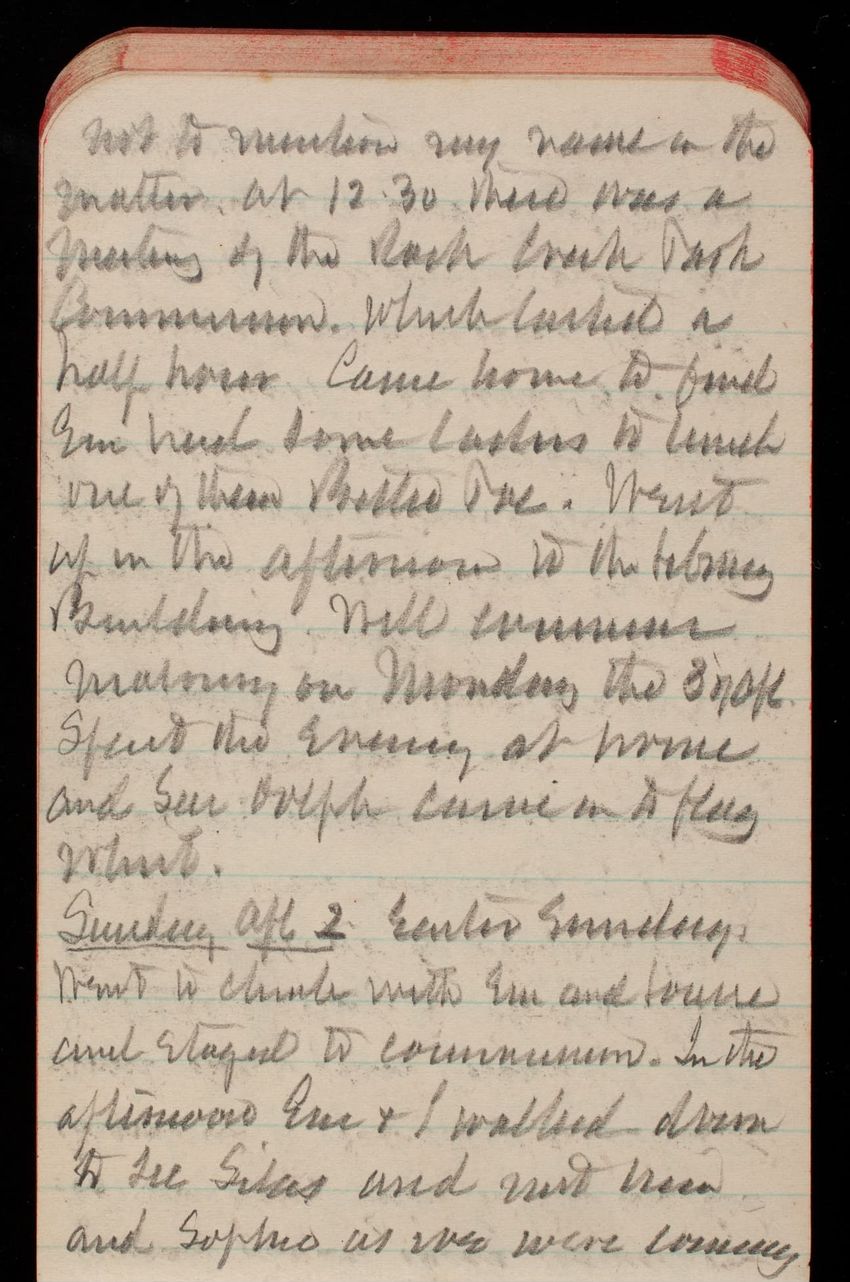 not to mention my name in the
matter. At 12.30 there was a
Meeting of the Rock Creek Park
Commission. Which lasted a
half hour. Came home to find
Em had some ladies to lunch
one of them Pottie Poe. Went
up in the afternoon to the Library
Building. Will commence
moving on Monday the 3rd Apl.
Spent the Evening at home
and Genl Dolph came in to play
Whist.
Sunday Apl 2 Easter Sunday.
Went to church with Em and
and stayed to communion. In the
afternoon Em & I walked down
to see Silas and met him
and Sophie as we were coming